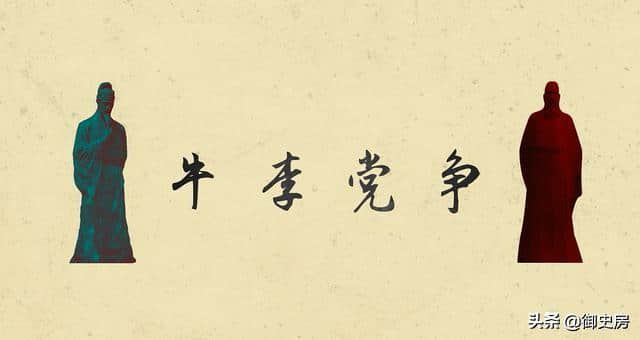 牛李党争
头条 @御史房